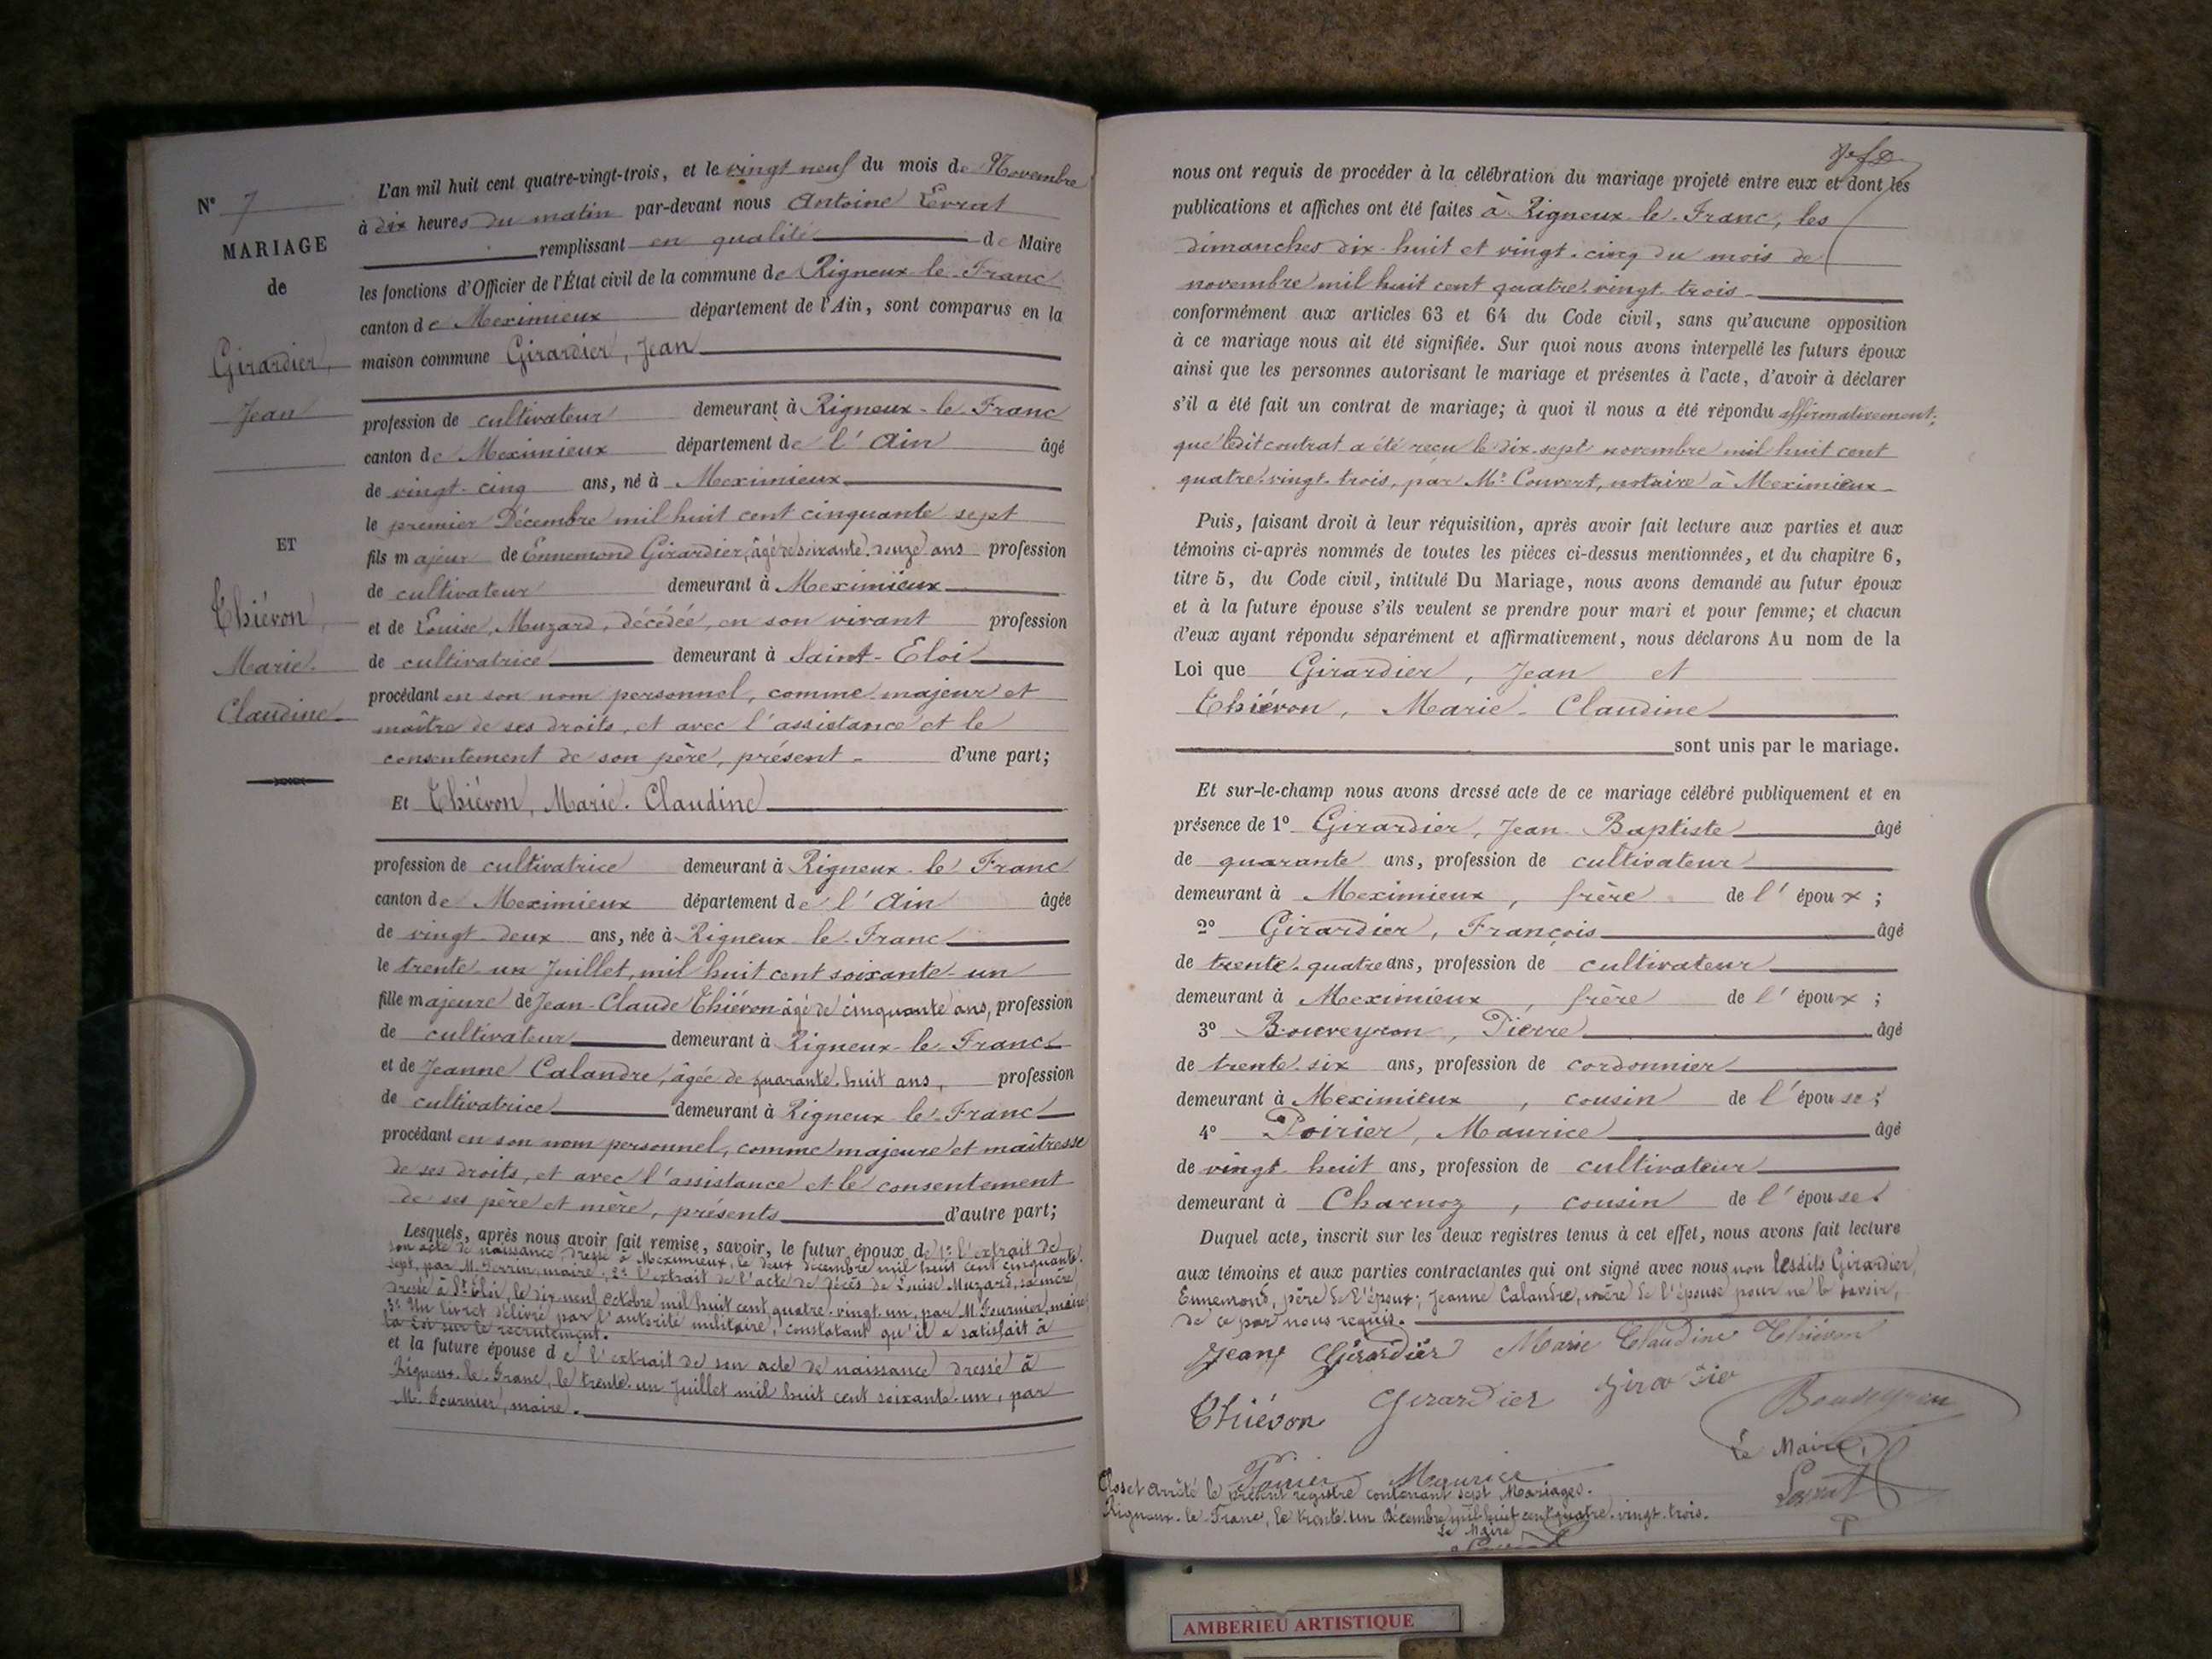 N° 7
MARIAGE
de
Girardier,
Jean
ET
Thiévon,
Marie-
Claudine
L'an mil huit cent quatre-vingt-trois, et le vingt neuf du mois de Novembre
à dix heures du matin par-devant nous Antoine Levrat
remplissant en qualité de Maire
les fonctions d'Officier de l'État civil de la commune de Rigneux-le-Franc
canton de Meximieux département de l'Ain, sont comparus en la
maison commune Girardier, Jean
profession de cultivateur demeurant à Rigneux-le-Franc
canton de Meximieux département de l'Ain âgé
de vingt-cinq ans, né à Meximieux
le premier Décembre mil huit cent cinquante sept
fils majeur de Ennemond Girardier, âgé de soixante-douze ans profession
de cultivateur demeurant à Meximieux
et de Louise Muzard, décédée, en son vivant profession
de cultivatrice demeurant à Saint-Eloi
procédant en son nom personnel, comme majeur et
maître de ses droits, et avec l'assistance et le
consentement de son père, présent - d'une part;
Et Thiévon, Marie-Claudine
profession de cultivatrice demeurant à Rigneux-le-Franc
canton de Meximieux département de l'Ain âgée
de vingt-deux ans, née à Rigneux-le-Franc
le trente-un Juillet mil huit cent soixante-un
fille majeure de Jean-Claude Thiévon âgé de cinquante ans, profession
de cultivateur demeurant à Rigneux-le-Franc
et de Jeanne Calandre, âgée de quarante-huit ans, profession
de cultivatrice demeurant à Rigneux-le-Franc
procédant en son nom personnel, comme majeure et maîtresse
de ses droits, et avec l'assistance et le consentement
de ses père et mère, présents d'autre part;
Lesquels, après nous avoir fait remise, savoir, le futur époux de 1° l'extrait de
son acte de naissance, dressé à Meximieux, le deux décembre mil huit cent cinquante-
sept, par M. Perrin, maire; 2° l'extrait de l'acte de décès de Louise Muzard, sa mère,
dressé à St Eloi, le dix-neuf octobre mil huit cent quatre-vingt-un, par M. Fournier, maire;
3° Un livret délivré par l'autorité militaire, constatant qu'il a satisfait à
la loi sur le recrutement.
et la future épouse de l'extrait de son acte de naissance dressé à
Rigneux-le-Franc, le trente-un Juillet mil huit cent soixante-un, par
M. Fournier, maire.
nous ont requis de procéder à la célébration du mariage projeté entre eux et dont les
publications et affiches ont été faites à Rigneux-le-Franc, les
dimanches dix-huit et vingt-cinq du mois de
novembre mil huit cent quatre-vingt-trois
conformément aux articles 63 et 64 du Code civil, sans qu'aucune opposition
à ce mariage nous ait été signifiée. Sur quoi nous avons interpellé les futurs époux
ainsi que les personnes autorisant le mariage et présentes à l'acte, d'avoir à déclarer
s'il a été fait un contrat de mariage; à quoi il nous a été répondu affirmativement;
que ledit contrat a été reçu le dix-sept novembre mil huit cent
quatre-vingt-trois, par Me Couvert, notaire à Meximieux
Puis, faisant droit à leur réquisition, après avoir fait lecture aux parties et aux
témoins ci-après nommés de toutes les pièces ci-dessus mentionnées, et du chapitre 6,
titre 5, du Code civil, intitulé Du Mariage, nous avons demandé au futur époux
et à la future épouse s'ils veulent se prendre pour mari et pour femme; et chacun
d'eux ayant répondu séparément et affirmativement, nous déclarons Au nom de la
Loi que Girardier, Jean et
Thiévon, Marie-Claudine
sont unis par le mariage.
Et sur-le-champ nous avons dressé acte de ce mariage célébré publiquement et en
présence de 1° Girardier, Jean-Baptiste âgé
de quarante ans, profession de cultivateur
demeurant à Meximieux, frère de l'époux;
2° Girardier, François âgé
de trente-quatre ans, profession de cultivateur
demeurant à Meximieux, frère de l'époux;
3° Bouveyron, Pierre âgé
de trente-six ans, profession de cordonnier
demeurant à Meximieux, cousin de l'épouse;
4° Poirier, Maurice âgé
de vingt-huit ans, profession de cultivateur
demeurant à Charnoz, cousin de l'épouse.
Duquel acte, inscrit sur les deux registres tenus à cet effet, nous avons fait lecture
aux témoins et aux parties contractantes qui ont signé avec nous, non lesdits Girardier,
Ennemond, père de l'époux; Jeanne Calandre, mère de l'épouse pour ne le savoir,
de ce par nous requis.
Jean Girardier Marie Claudine Thiévon
Thiévon Girardier Girardier Bouveyron
Le Maire,
Poirier Maurice Levrat
Clos et arrêté le présent registre contenant sept Mariages.
Rigneux-le-Franc, le trente-un Décembre mil huit cent quatre-vingt-trois.
Le Maire
Levrat
AMBERIEU ARTISTIQUE